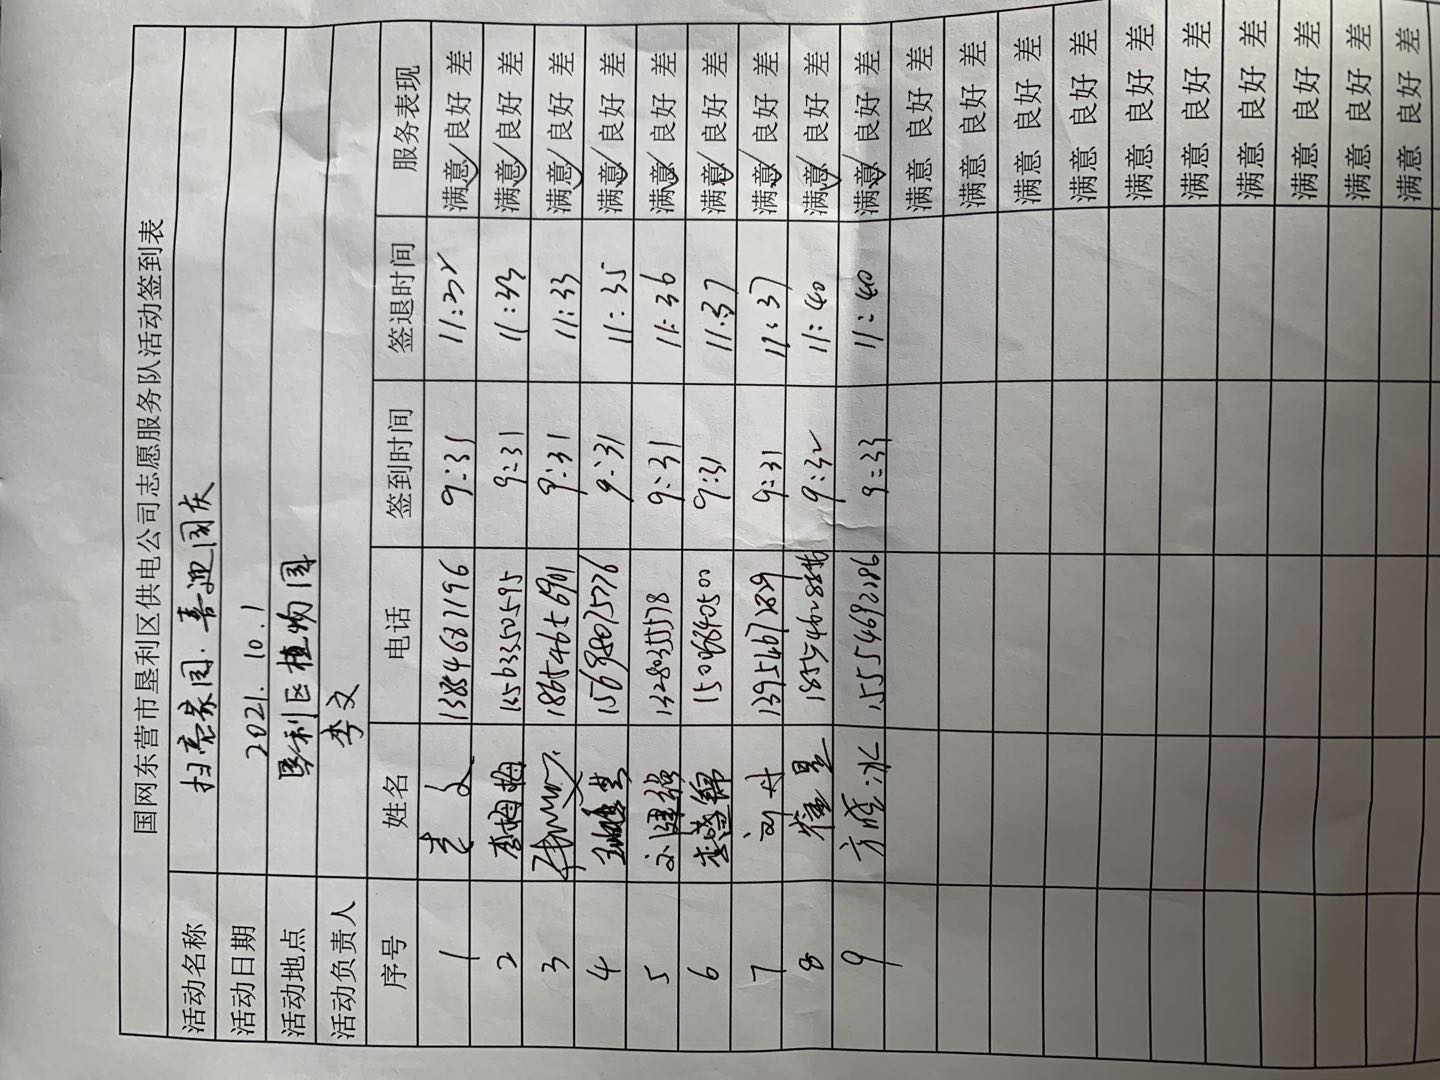 国网东营市垦利区供电公司志愿服务队活动签到表
活动名称 扫亮家园·喜迎国庆
活动日期 2021.10.1
活动地点 垦利区植物园
活动负责人 李文
序号 姓名 电话 签到时间 签退时间 服务表现
1 13854681196 9:31 11:32 满意✓ 良好 差
2 李梅梅 15633550595 9:31 11:33 满意✓ 良好 差
3 18654656901 9:31 11:33 满意✓ 良好 差
4 15698075776 9:31 11:35 满意✓ 良好 差
5 13280355578 9:31 11:36 满意✓ 良好 差
6 9:31 11:37 满意✓ 良好 差
7 13954671289 9:31 11:37 满意✓ 良好 差
8 崔昱 9:32 11:40 满意✓ 良好 差
9 15554692286 9:33 11:40 满意✓ 良好 差
满意 良好 差
满意 良好 差
满意 良好 差
满意 良好 差
满意 良好 差
满意 良好 差
满意 良好 差
满意 良好 差
满意 良好 差
满意 良好 差